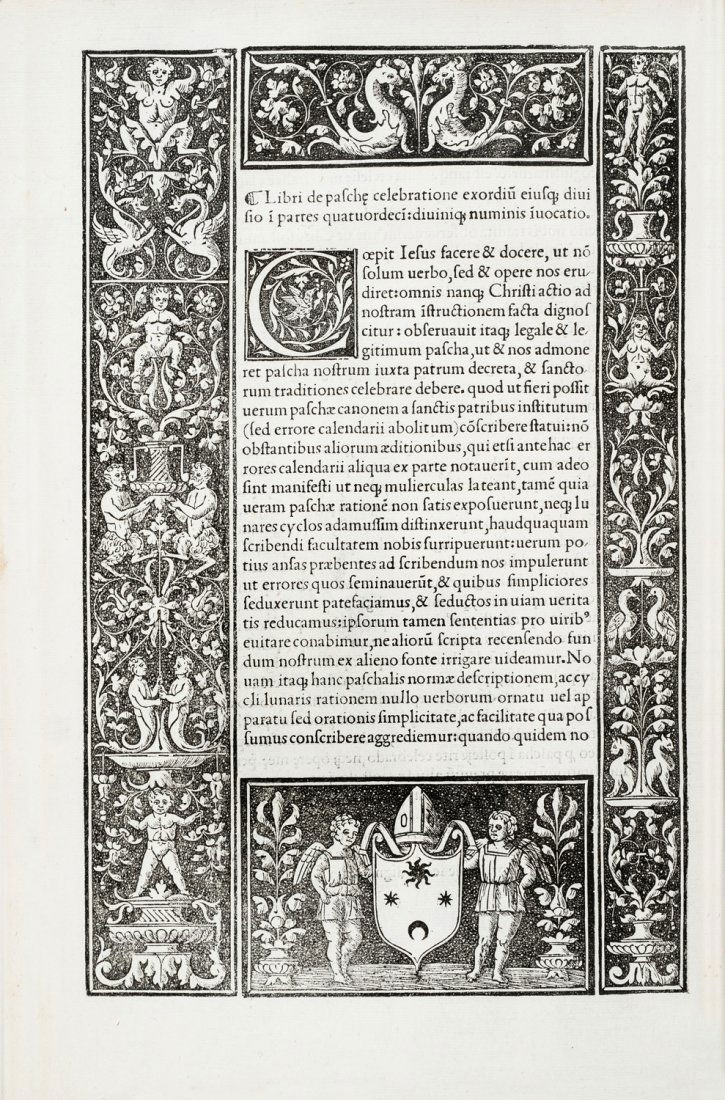 ¶ Libri de paschę celebratione exordiū eiusq; diui
sio ī partes quatuordecī: diuiniq; numinis īuocatio.
Cœpit Iesus facere & docere, ut nō
solum uerbo, sed & opere nos eru-
diret: omnis nanq; Christi actio ad
nostram īstructionem facta dignos
citur: obseruauit itaq; legale & le-
gitimum pascha, ut & nos admone
ret pascha nostrum iuxta patrum decreta, & sancto-
rum traditiones celebrare debere. quod ut fieri possit
uerum paschæ canonem a sanctis patribus institutum
(sed errore calendarii abolitum) cōscribere statui: nō
obstantibus aliorum æditionibus, qui etsi ante hac er
rores calendarii aliqua ex parte notauerīt, cum adeo
sint manifesti ut neq; mulierculas lateant, tamē quia
ueram paschæ rationē non satis exposuerunt, neq; lu
nares cyclos adamussim distinxerunt, haudquaquam
scribendi facultatem nobis surripuerunt: uerum po-
tius ansas præbentes ad scribendum nos impulerunt
ut errores quos seminauerūt, & quibus simpliciores
seduxerunt patefaciamus, & seductos in uiam uerita
tis reducamus: ipsorum tamen sententias pro uiribꝰ
euitare conabimur, ne aliorū scripta recensendo fun
dum nostrum ex alieno fonte irrigare uideamur. No
uam itaq; hanc paschalis normæ descriptionem, ac cy
cli lunaris rationem nullo uerborum ornatu uel ap
paratu sed orationis simplicitate, ac facilitate qua pos
sumus conscribere aggrediemur: quando quidem no